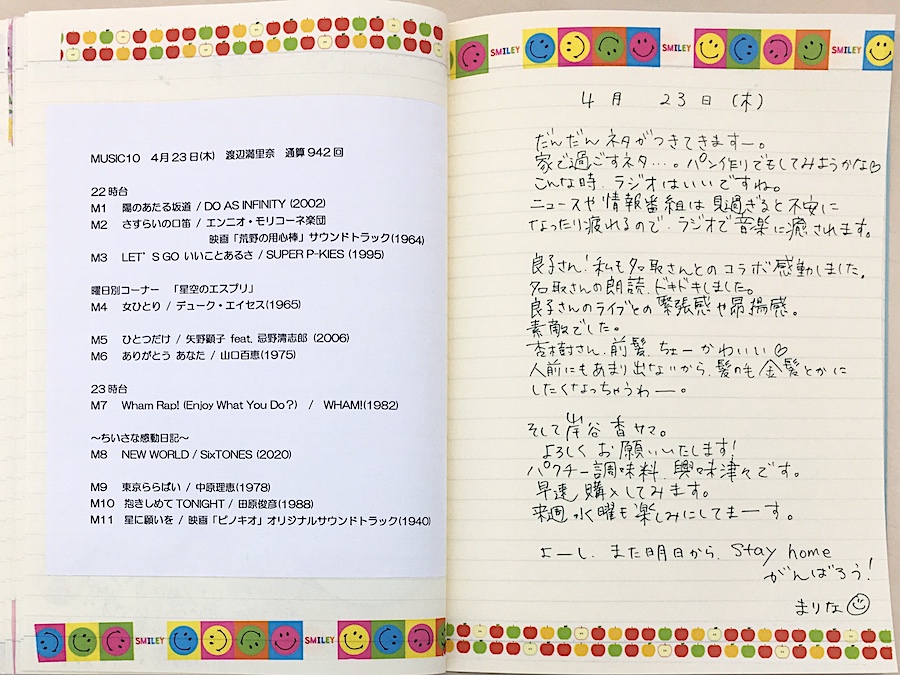 SMILEY
SMILEY
SMILEY
MUSIC10 4月23日(木) 渡辺満里奈 通算942回
22時台
M1 陽のあたる坂道 / DO AS INFINITY (2002)
M2 さすらいの口笛 / エンニオ・モリコーネ楽団
映画「荒野の用心棒」サウンドトラック(1964)
M3 LET'S GO いいことあるさ / SUPER P-KIES (1995)
曜日別コーナー 「星空のエスプリ」
M4 女ひとり / デューク・エイセス(1965)
M5 ひとつだけ / 矢野顕子 feat. 忌野清志郎 (2006)
M6 ありがとう あなた / 山口百恵(1975)
23時台
M7 Wham Rap! (Enjoy What You Do?) / WHAM!(1982)
～ちいさな感動日記～
M8 NEW WORLD / SixTONES (2020)
M9 東京ららばい / 中原理恵(1978)
M10 抱きしめてTONIGHT / 田原俊彦(1988)
M11 星に願いを / 映画「ピノキオ」オリジナルサウンドトラック(1940)
SMILEY
SMILEY
4月 23日 (木)
だんだんネタがつきてきますー。
家で過ごすネタ…。パン作りでもしてみようかな♡
こんな時、ラジオはいいですね。
ニュースや情報番組は見過ぎると不安に
なったり疲れるので、ラジオで音楽に癒されます。
良子さん!私も名取さんとのコラボ感動しました。
名取さんの朗読、ドキドキしました。
良子さんのライブとの緊張感や昂揚感。
素敵でした。
杏樹さん、前髪、ちょーかわいい♡
人前にもあまり出ないから、髪の毛金髪とかに
したくなっちゃうわー。
そして岸谷香サマ。
よろしくお願いいたします!
パクチー調味料、興味津々です。
早速購入してみます。
来週水曜も楽しみにしてまーす。
よーし、また明日から、Stay home
がんばろう!
まりな